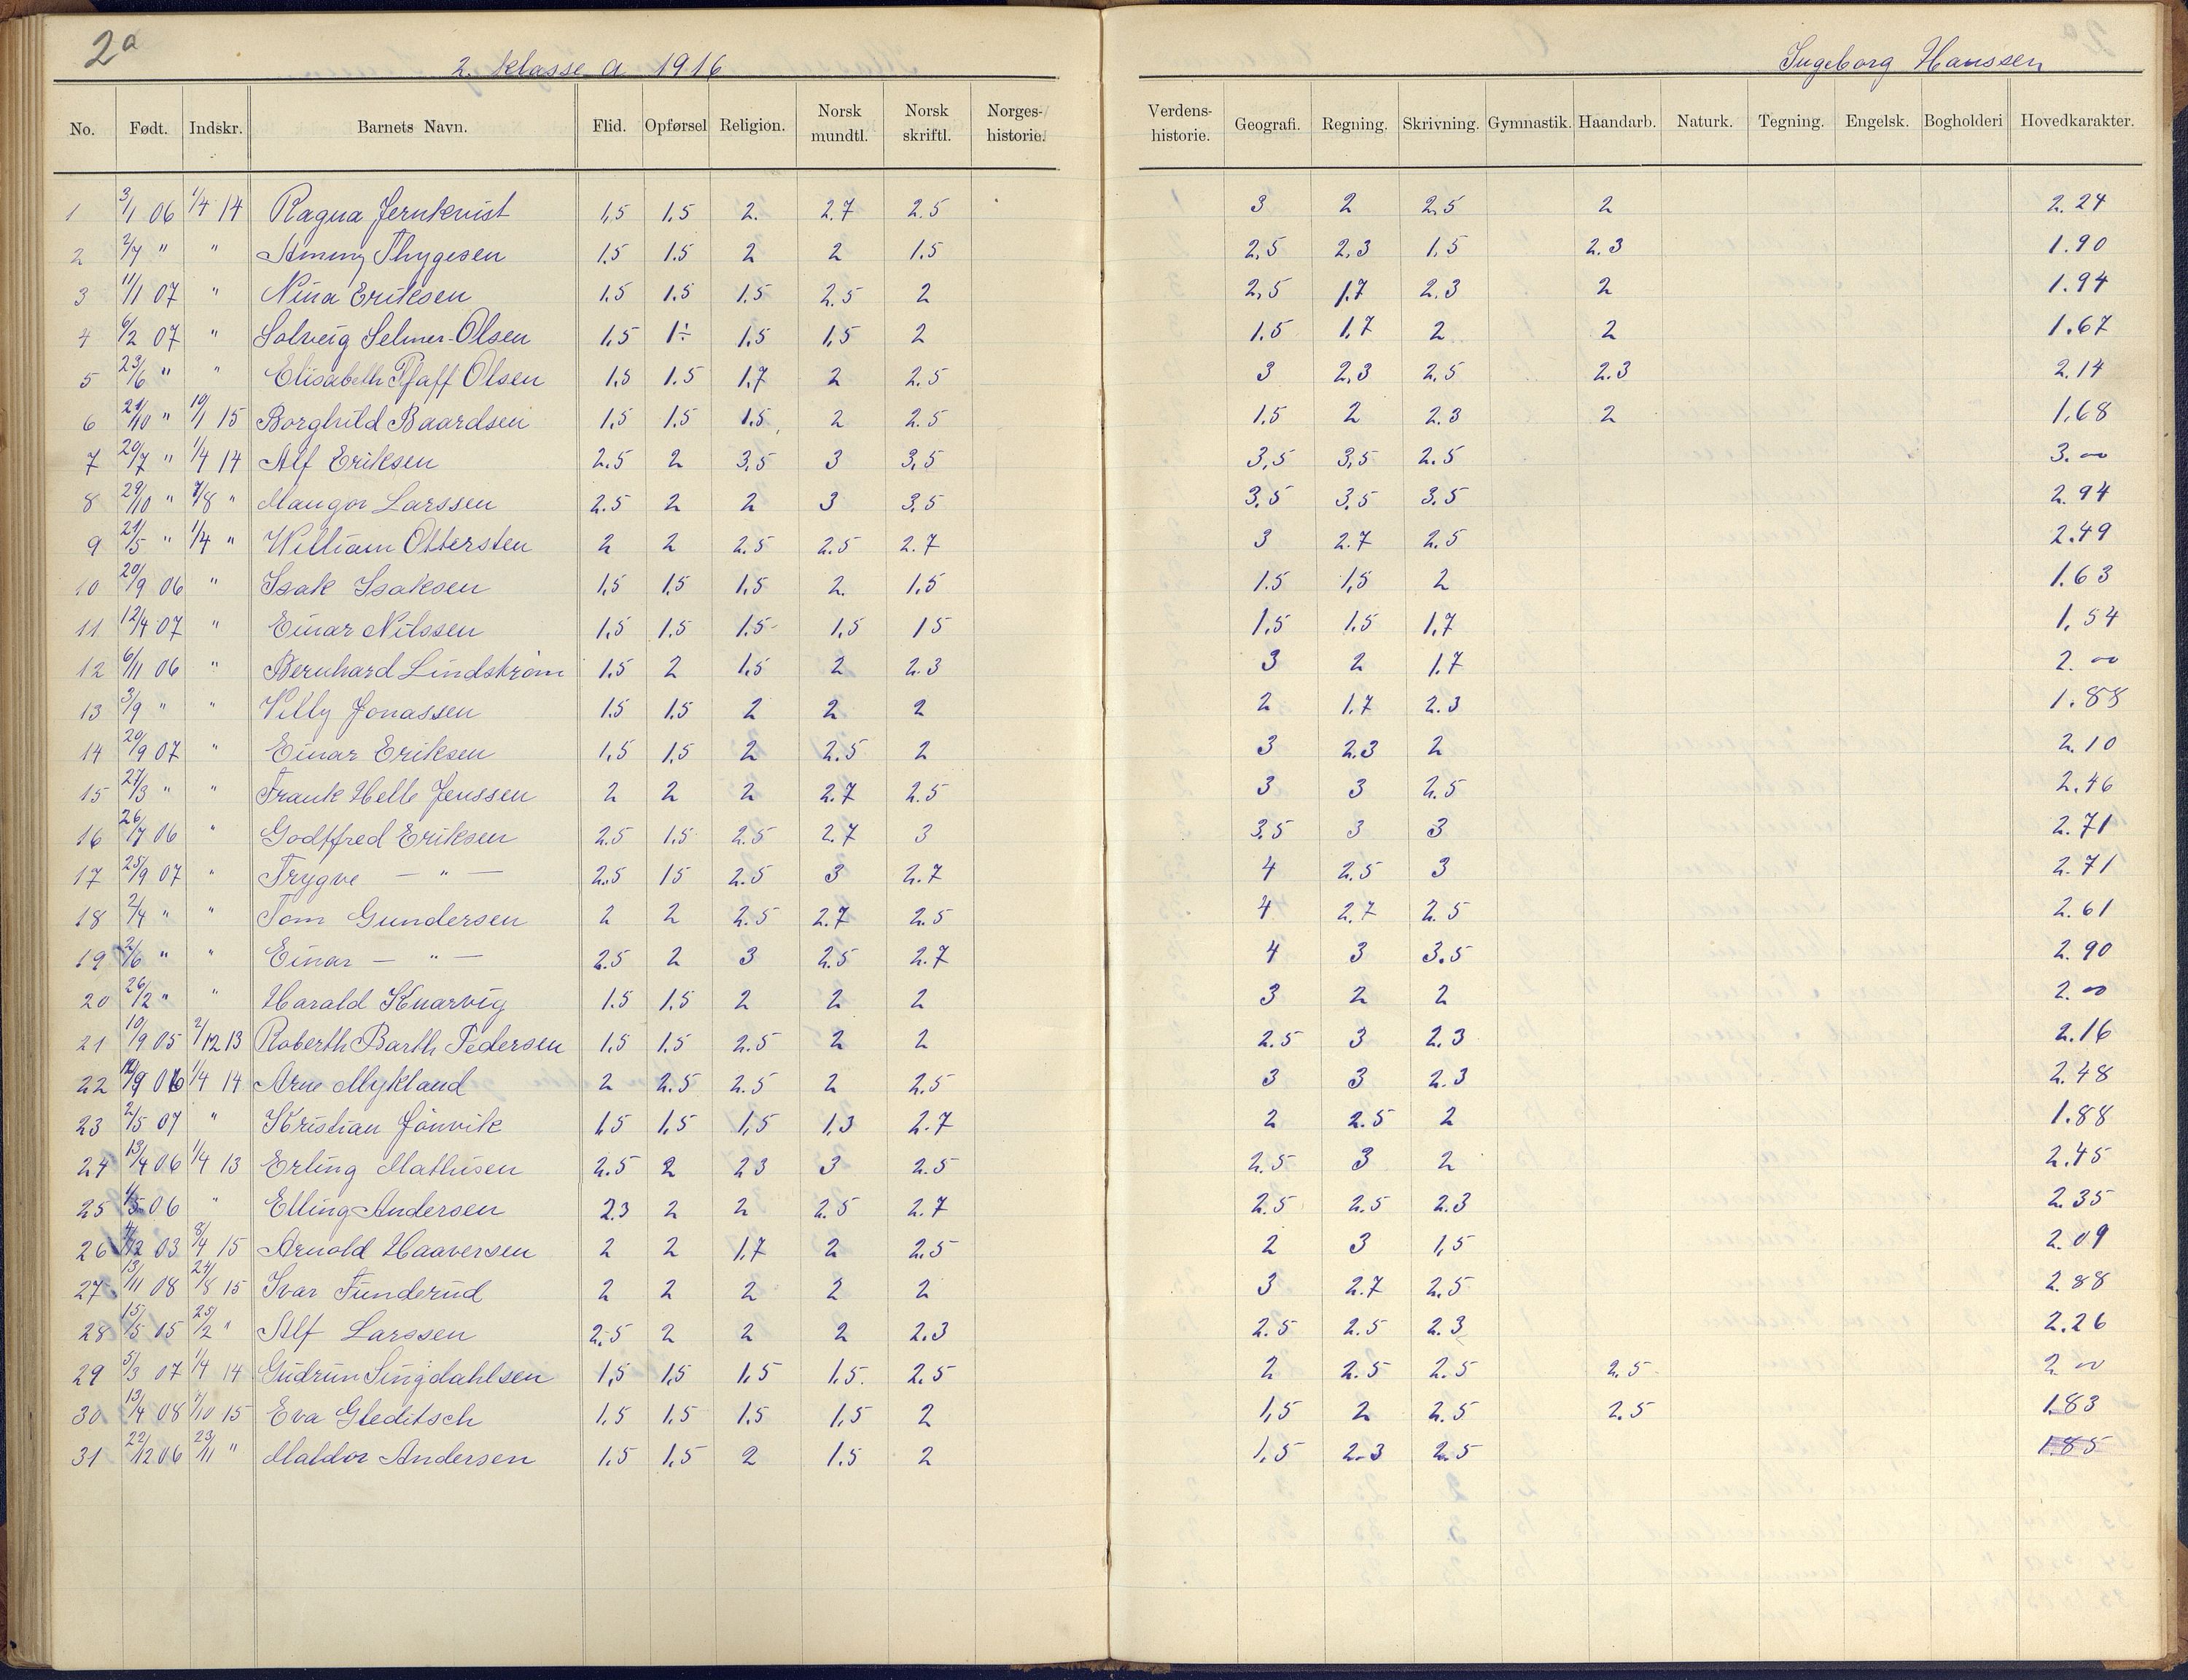 2a
2. klasse a 1916
Ingeborg Hanssen
No. Født. Indskr. Barnets Navn. Flid. Opførsel Religion. Norsk mundtl. Norsk skriftl. Norges-historie. Verdens-historie. Geografi. Regning. Skrivning. Gymnastik. Haandarb. Naturk. Tegning. Engelsk. Bogholderi Hovedkarakter.
1 3/1 06 1/4 14 Ragna Jernkvist 1,5 1,5 2. 2.7 2.5 3 2 2.5 2 2.24
2 2/7 " " Ammy Thygesen 1.5 1.5 2 2 1.5 2,5 2,3 1,5 2.3 1.90
3 11/1 07 " Nina Eriksen 1.5 1.5 1.5 2.5 2 2,5 1.7 2.3 2 1.94
4 6/2 07 " Solveig Selmer-Olsen 1,5 1÷ 1.5 1,5 2 1.5 1,7 2 2 1.67
5 23/6 " " Elisabeth Pfaff Olsen 1,5 1.5 1,7 2 2.5 3 2,3 2,5 2.3 2.14
6 21/10 " 19/1 15 Borghild Baardsen 1,5 1.5 1.5 2 2.5 1.5 2 2.3 2 1,68
7 20/7 " 1/4 14 Alf Eriksen 2.5 2 3,5 3 3,5 3,5 3,5 2.5 3.00
8 29/10 " 7/8 " Mangor Larssen 2.5 2 2 3 3,5 3,5 3,5 3.5 2.94
9 21/5 " 1/4 " William Ottersten 2 2 2.5 2.5 2.7 3 2.7 2,5 2.49
10 20/9 06 " Isak Isaksen 1,5 1,5 1,5 2. 1,5 1.5 1,5 2 1.63
11 12/4 07 " Einar Nilssen 1,5 1,5 1.5 1,5 15 1,5 1.5 1,7 1,54
12 6/11 06 " Bernhard Lindstrøm 1.5 2 1,5 2 2.3 3 2 1.7 2.00
13 3/9 " " Villy Jonassen 1.5 1.5 2 2 2 2 1.7 2.3 1.88
14 20/9 07 " Einar Eriksen 1,5 1,5 2 2.5 2 3 2.3 2 2.10
15 27/3 " " Frank Helle Jenssen 2 2 2 2.7 2.5 3 3 2.5 2.46
16 26/7 06 " Godtfred Eriksen 2.5 1.5 2.5 2.7 3 3,5 3 3 2.71
17 25/9 07 " Trygve — " — 2.5 15 2.5 3 2.7 4 2.5 3 2.71
18 2/4 " " Tom Gundersen 2 2 2.5 2.7 2.5 4 2.7 2.5 2.61
19 2/6 " " Einar — " — 2.5 2 3 2.5 2.7 4 3 3.5 2.90
20 26/2 " " Harald Knarvig 1.5 1.5 2 2 2 3 2 2 2.00
21 10/9 05 2/12 13 Roberth Barth Pedersen 1,5 1.5 2.5 2 2 2.5 3 2.3 2.16
22 /9 06 1/4 14 Arne Mykland 2 2.5 2.5 2 2.5 3 3 2.3 2.48
23 2/5 07 " Kristian Jönvik 1,5 1,5 1,5 1,3 2.7 2 2.5 2 1.88
24 13/4 06 1/4 13 Erling Mathisen 2.5 2 23 3 2.5 2.5 3 2 2.45
25 1/5 06 " Elling Andersen 2.3 2 2 2.5 2.7 2.5 2.5 2.3 2.35
26 4/12 03 8/4 15 Arnold Haaversen 2 2 1.7 2 2.5 2 3 1,5 2.09
27 13/11 08 24/8 15 Ivar Funderud 2 2 2 2 2 3 2.7 2,5 2.88
28 15/5 05 25/2 " Alf Larssen 2.5 2 2 2 2.3 2.5 2.5 2.3 2.26
29 5/3 07 1/4 14 Gudrun Singdahlsen 1,5 1,5 1,5 1.5. 2.5 2 2.5 2.5 2.5 2.00
30 13/4 08 7/10 15 Eva Gleditsch 1,5 1,5 1.5 1,5 2 1,5 2 2.5 2.5 1.83
31 22/12 06 23/11 " Haldor Andersen 1.5 1,5 2 1.5 2 1,5 2.3 2.5 1.85